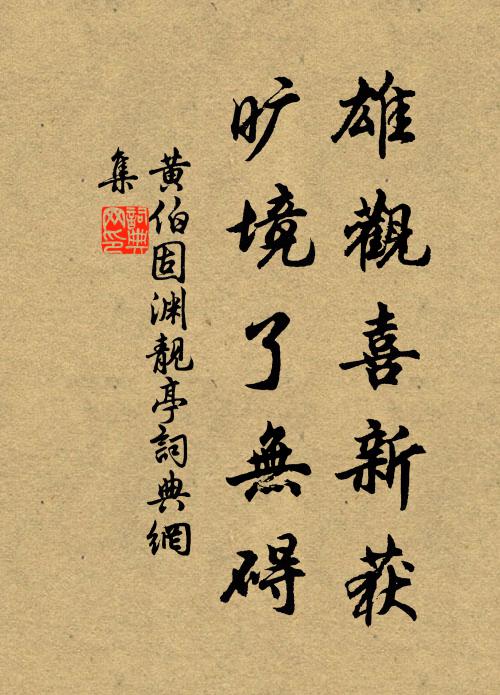 雄觀喜新获
旷境了無碍
黄伯固渊靓亭詞典網
集
詞典
网印